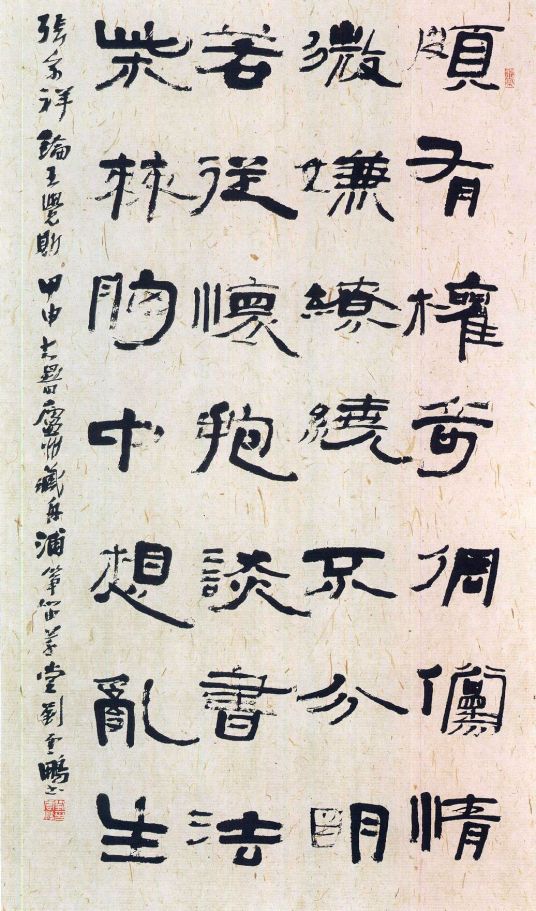 頗有權奇倜儻情
微嫌繚繞不分明
若從懷抱談書法
柴棘胸中想亂生
張宗祥論王覺斯 甲申大暑廬州藏舟浦草堂劉雲鶴